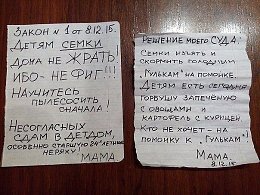 Закон №1 от 8.12.15.
Детям семки
дома не жрать
ибо - не фиг!!!
Научитесь
пылесосить
сначала!
Несогласных
сдам в детдом,
особенно старшую 24х летнюю
неряху!
Мама
Решение моего суда.
Семки изъять и
скормить голодным
"Гулькам" на помойке.
Детям есть сегодня
горбушу запечёную
с овощами и
картофель с курицей.
Кто не хочет - на
помойку к "Гулькам"!
Мама.
8.12.15.